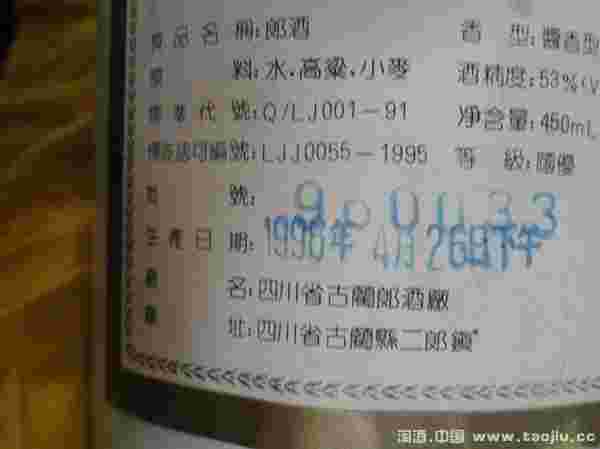 產品名稱:郎酒 香型:醬香型
原料:水,高粱,小麥 酒精度:53%(V
標準代號:Q/LJ001-91 净含量:450mL
標簽認可編號:LJJ0055-1995 等級:國優
批號:
生產日期:1996年4月26日下午
廠名:四川省古藺郎酒廠
廠址:四川省古藺縣二郎鎮
淘酒.中国 www.taojiu.cc